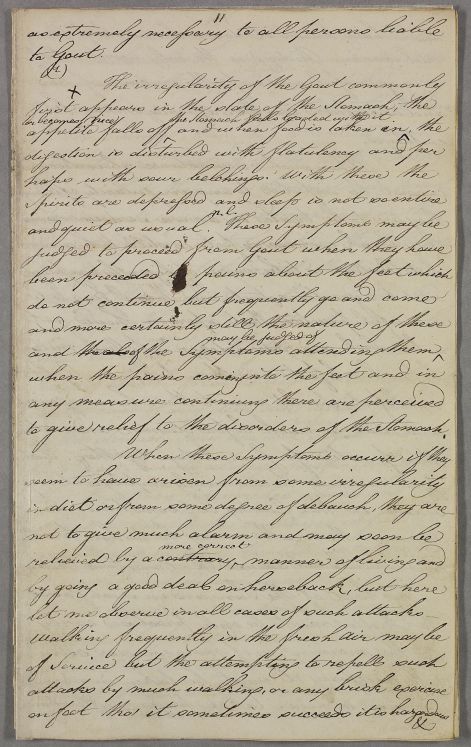 11
as extremely necessary to all persons liable
to Gout.
The irregularity of the Gout commonly
first appears in the state of the Stomach, the
or becomes nicey the stomach feels loaded with it
appetite falls off and when food is taken in, the
digestion is disturbed with flatulency and per
haps with sour belchings. With these the
Spirits are depressed and sleep is not so entire
and quiet as usual. These Symptoms may be
n.l.
judged to proceed from Gout when they have
been preceeded by pains about the feet which
do not continue but frequently go and come
and more certainly still, the nature of these
may be judged of
and of the Symptoms attending them
when the pains coming into the feet and in
any measure continuing there are perceived
to give relief to the disorders of the Stomach.
When these Symptoms occurr if they
seem to have arisen from some irregularity
in diet or from some degree of debauch, they are
not to give much alarm and may soon be
more correct
relieved by a contrary manner of living and
by going a good deal on horseback, but here
let me observe in all cases of such attacks
walking frequently in the fresh air may be
of Service but the attempting to repell such
attacks by much walking, or any brisk exercise
on foot tho' it sometimes succeeds it is hazardous
&